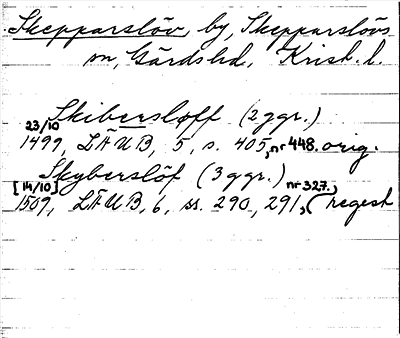 Skepparslöv, by, Skepparslövs
sn, Gärds hd, Krist. l.
Skibersloff (2 ggr.)
23/10
1499, LÄUB, 5, s. 405, nr 448. orig.
Skyberslöf (3 ggr.)
[14/10] nr 327.
1509, LÄUB, 6, ss. 290, 291, (regest